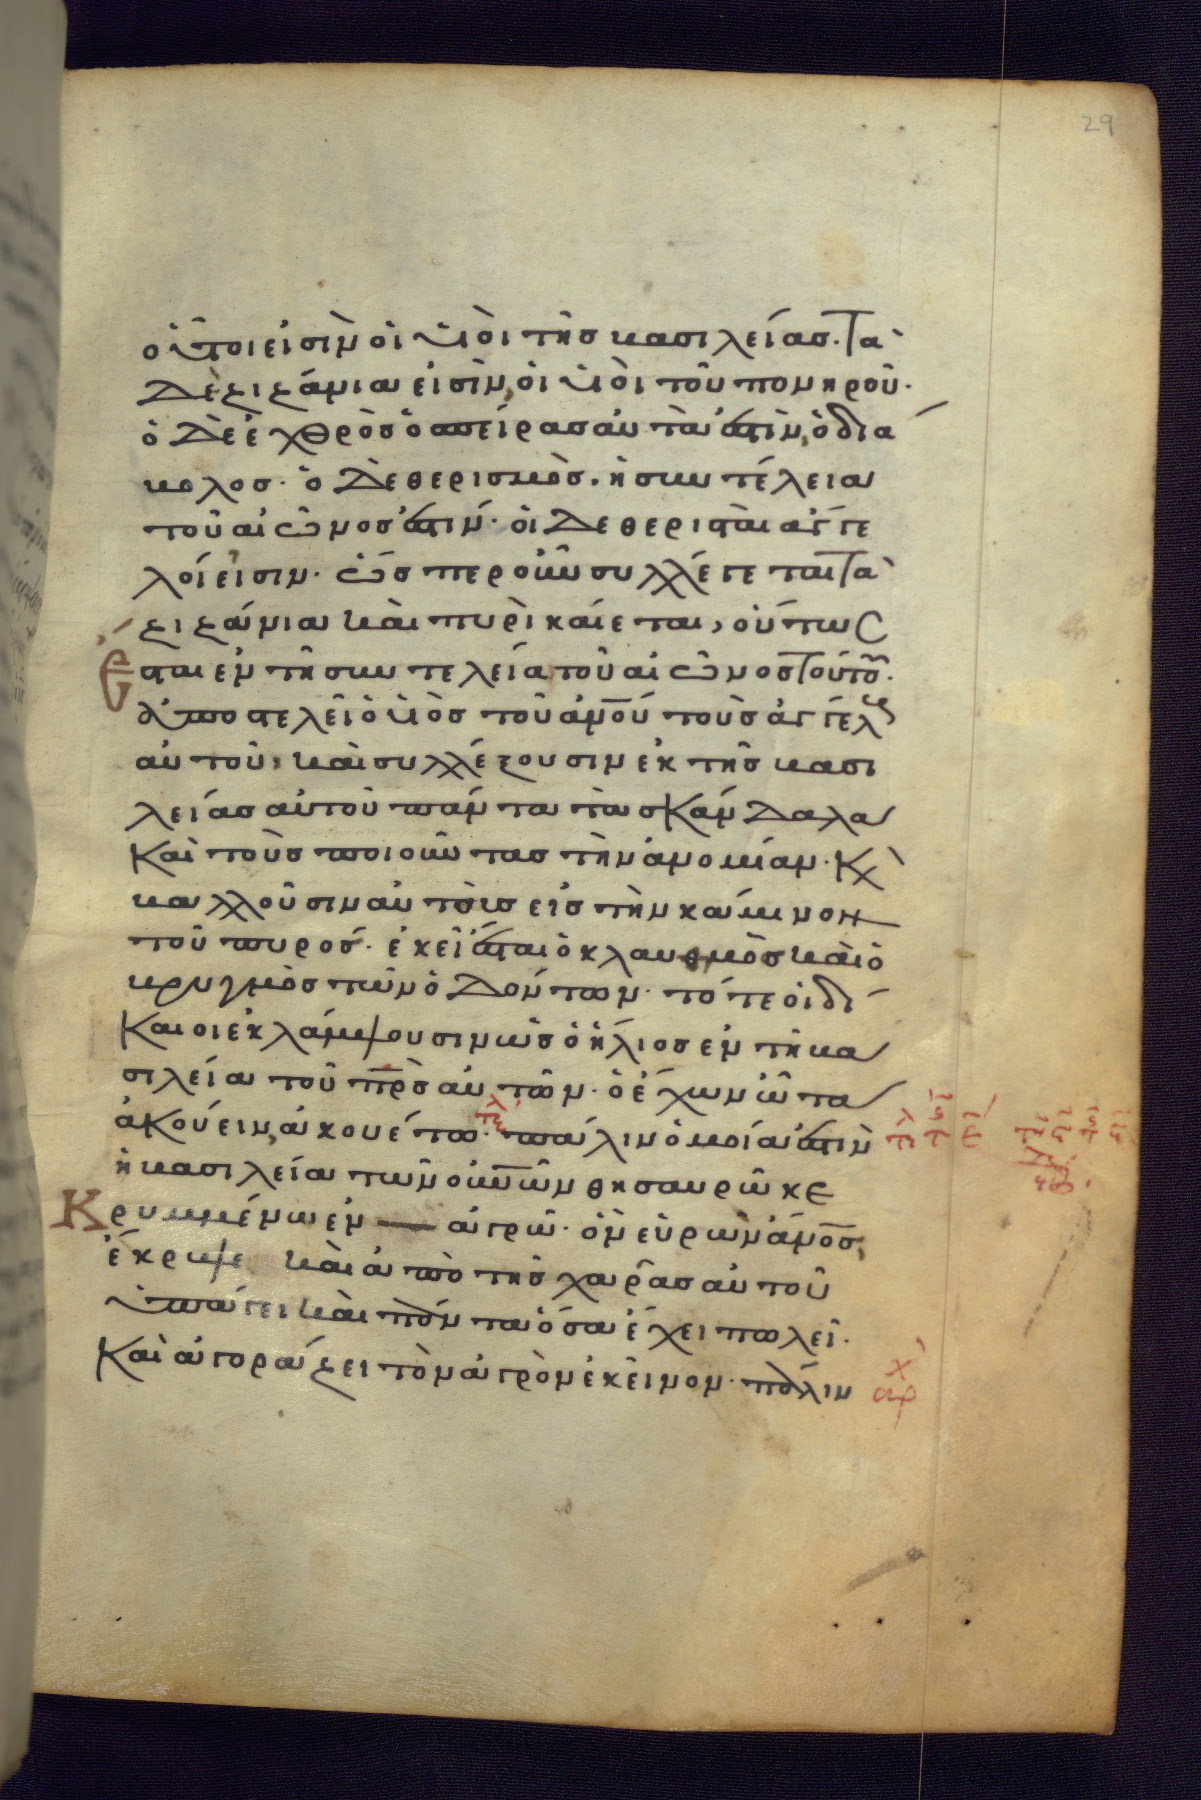 29
οὗτοι εἰσὶν οἱ υἱοὶ τῆς βασιλείας. Τὰ
δὲ ζιζάνια εἰσὶν, οἱ υἱοὶ τοῦ πονηροῦ.
ὁ δὲ ἐχθρὸς ὁ σπείρας αὐτὰ ἐστὶν, ὁ διά
βολος. ὁ δὲ θερισμὸς. ἡ συντέλεια
τοῦ αἰῶνος ἐστίν. οἱ δὲ θερισταὶ ἄγγε
λοί εἰσιν. ὥσπερ οὖν συλλέγεται τὰ
ζιζάνια καὶ πυρὶ καίεται, οὕτως
ἔσται ἐν τῇ συντελεία τοῦ αἰῶνος τούτου.
ἀποστελεῖ ὁ υἱὸς τοῦ ἀνου τοὺς ἀγγέλους
αὐτοῦ, καὶ συλλέξουσιν ἐκ τῆς βασι
λείας αὐτοῦ πάντα τὰ σκάνδαλα
καὶ τοὺς ποιοῦντας τὴν ἀνομίαν. κὶ
βαλλοῦσιν αὐτοὺς εἰς τὴν κάμινον
τοῦ πυρός. ἐκεῖ ἔσται ὁ κλαυθμὸς καὶ ὁ
βρυγμὸς τῶν ὀδόντων. τότε οἱ δί
καιοι ἐκλάμψουσιν ὡς ὁ ἥλιος ἐν τῇ βα
σιλεία τοῦ πρς αὐτῶν. ὁ ἔχων ὦτα
ἀκούειν, ἀκουέτω. πάλιν ὁμοία ἐστὶν
ἡ βασιλεία τῶν οὐνῶν θησαυρῶ κε
κρυμμένω ἐν ἀγρῶ. ὃν εὑρὼν ἀνος,
ἔκρυψε καὶ ἀπὸ τῆς χαρᾶς αὐτοῦ
ὑπάγει καὶ πάντα ὅσα ἔχει πωλεῖ.
καὶ ἀγοράζει τὸν ἀγρὸν ἐκεῖνον. πάλιν